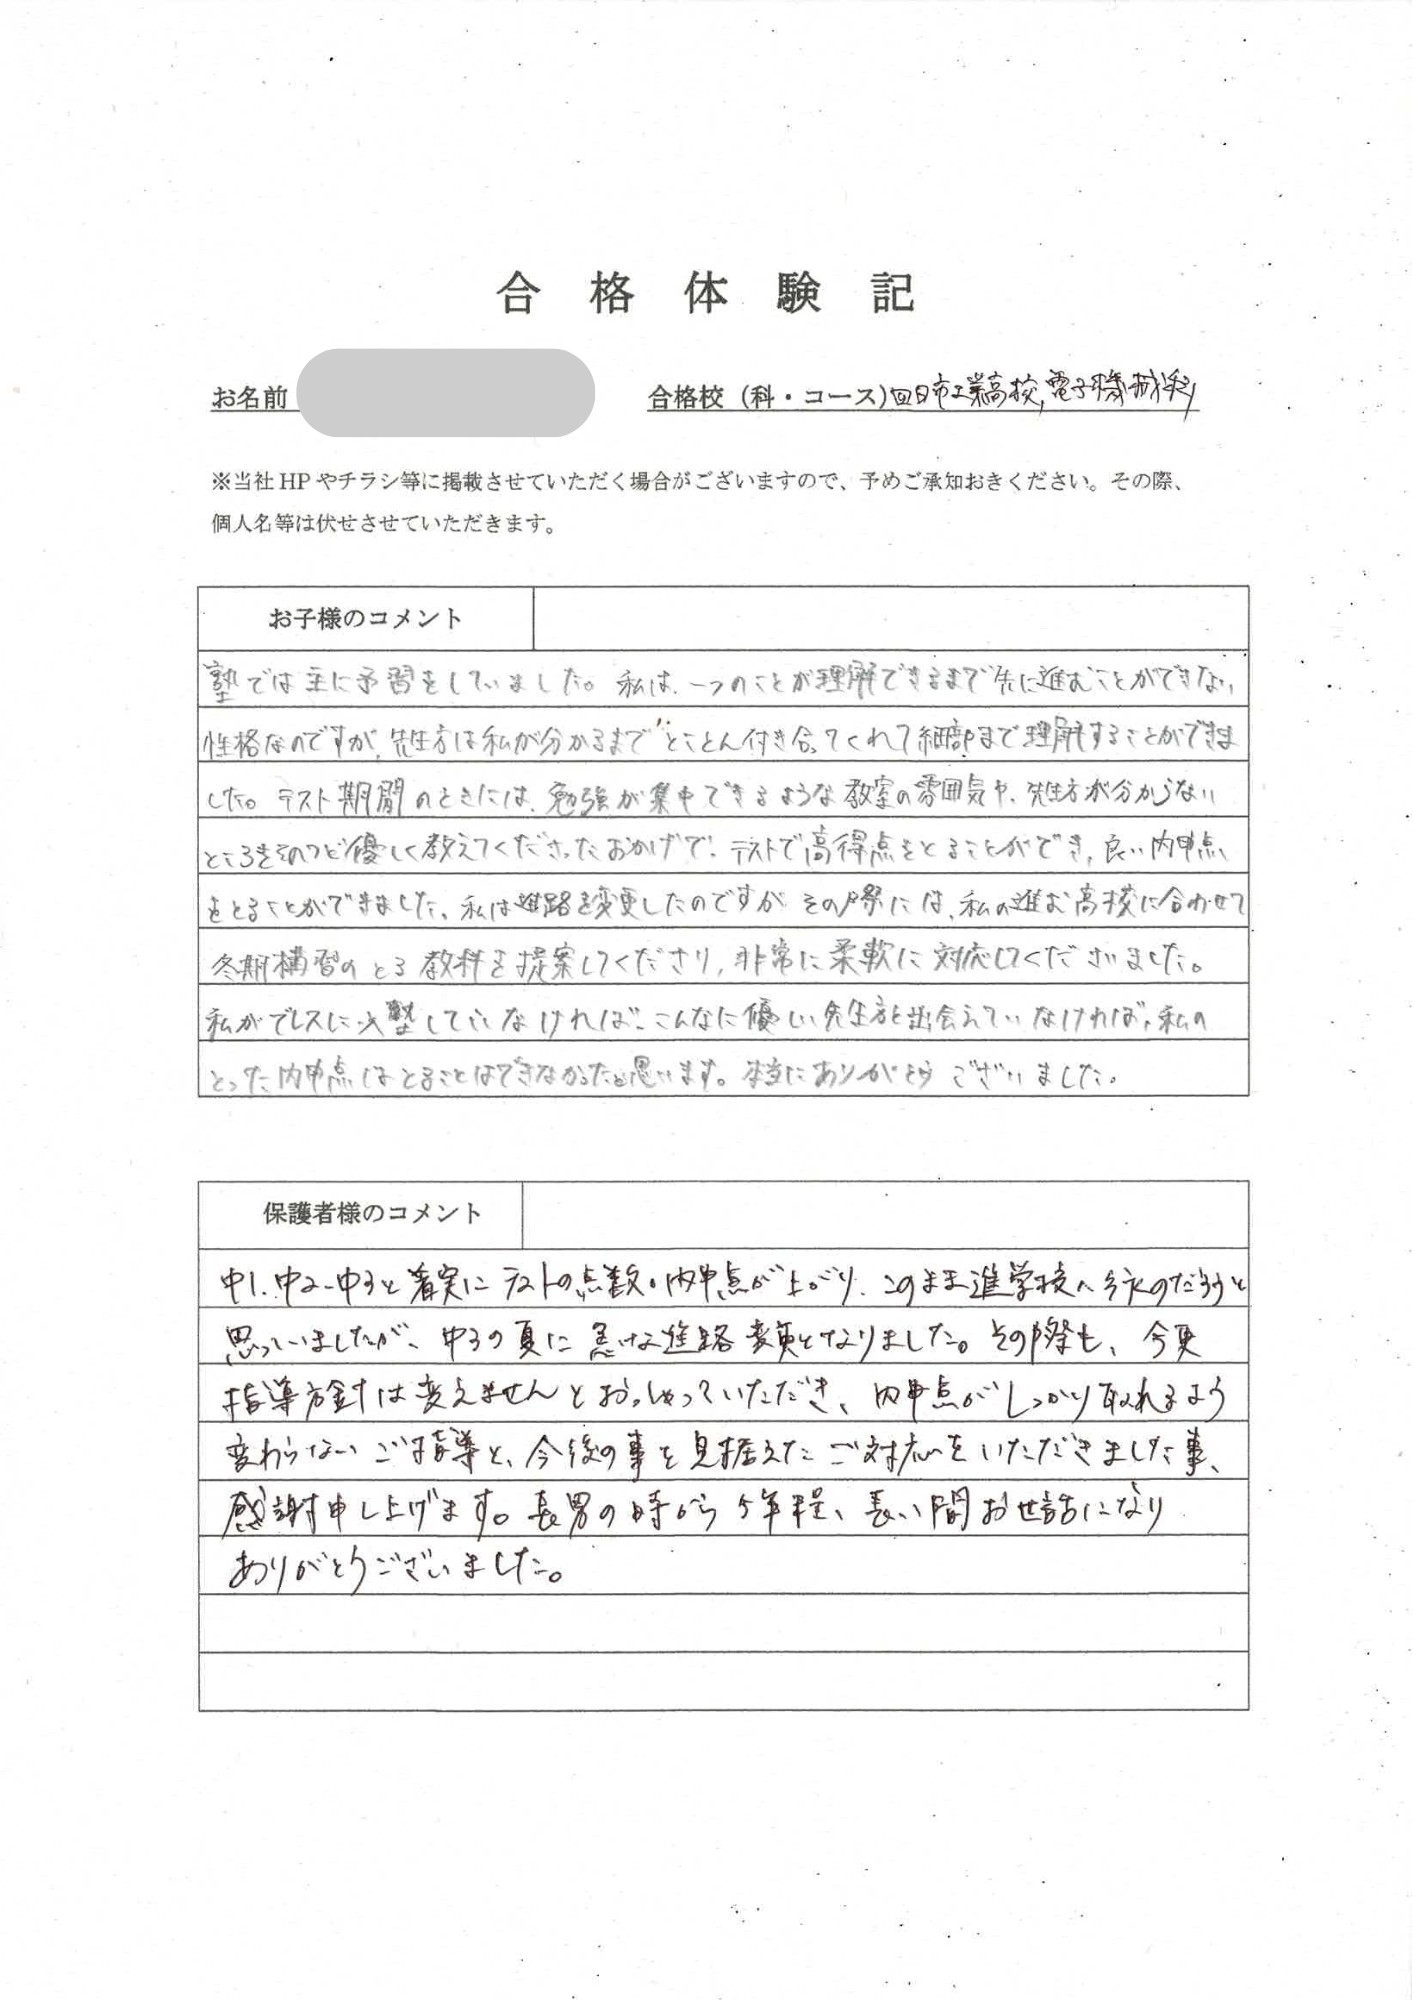 合格体験記
お名前
合格校（科・コース）四日市工業高校，電子機械科
※当社HPやチラシ等に掲載させていただく場合がございますので、予めご承知おきください。その際、
個人名等は伏せさせていただきます。
お子様のコメント
塾では主に予習をしていました。私は、一つのことが理解できるまで先に進むことができない
性格なのですが、先生方は私が分かるまでとことん付き合ってくれて細部まで理解することができま
した。テスト期間のときには、勉強が集中できるような教室の雰囲気や、先生方が分からない
ところをそのつど優しく教えてくださったおかげで、テストで高得点をとることができ、良い内申点
をとることができました。私は進路を変更したのですが その際には、私の進む高校に合わせて
冬期構習のとる教科を提案してくださり，非常に柔軟に対応してくださいました。
私がでレスに入塾していなければ、こんなに優しい先生方と出会えていなければ、私の
とった内申点はとることはできなかったと思います。本当にありがとうございました。
保護者様のコメント
中1、中2、中3と着実にテストの点数・内申点が上がり、このまま進学校へ行くのだろうと
思っていましたが、中3の夏に急な進路変更となりました。その際も、今更
指導方針は変えませんとおっしゃっていただき、内申点がしっかり取れるよう
変わらないご指導と、今後の事を見据えたご対応をいただきました事、
感謝申し上げます。長男の時から5年程、長い間お世話になり
ありがとうございました。